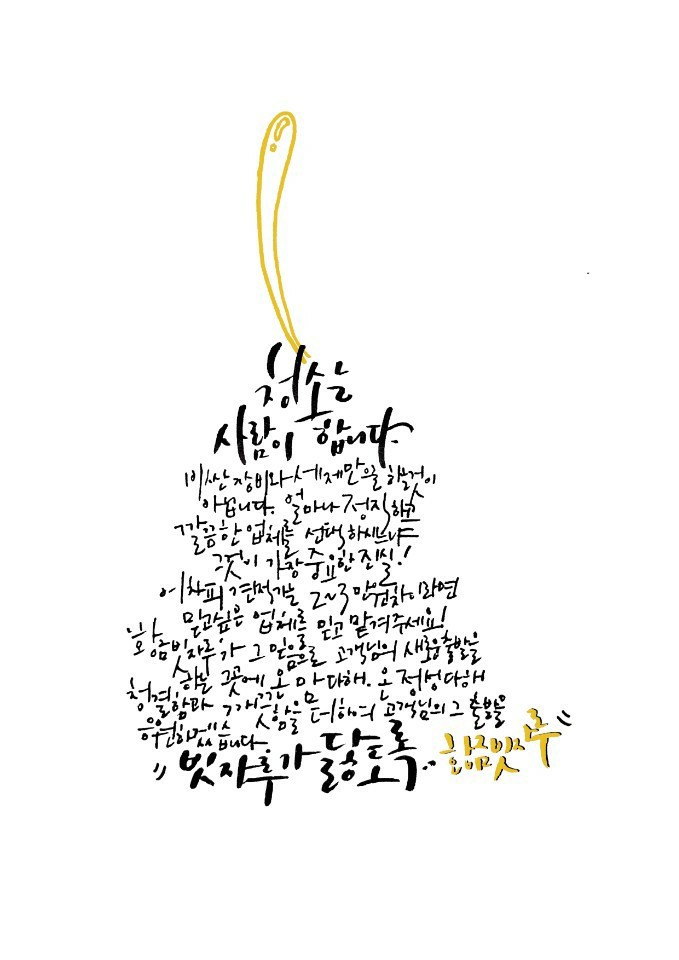 청소는
사람이 합니다.
비싼 장비와 세제만을 하는것이
아닙니다. 얼마나 정직하고
깔끔한 업체를 선택하시느냐
그것이 가장 중요한 진실!
어차피 견적가는 2~3만원차이라면
믿고싶은 업체를 믿고 맡겨주세요!
황금빗자루가 그 믿음으로 고객님의 새로운출발을
하는 그곳에 온 마음다해. 온 정성다해
청결함과 깨끗함을 더하여 고객님의 그 출발을
응원하겠습니다.
"빗자루가 닳토록.. 황금빗자루"